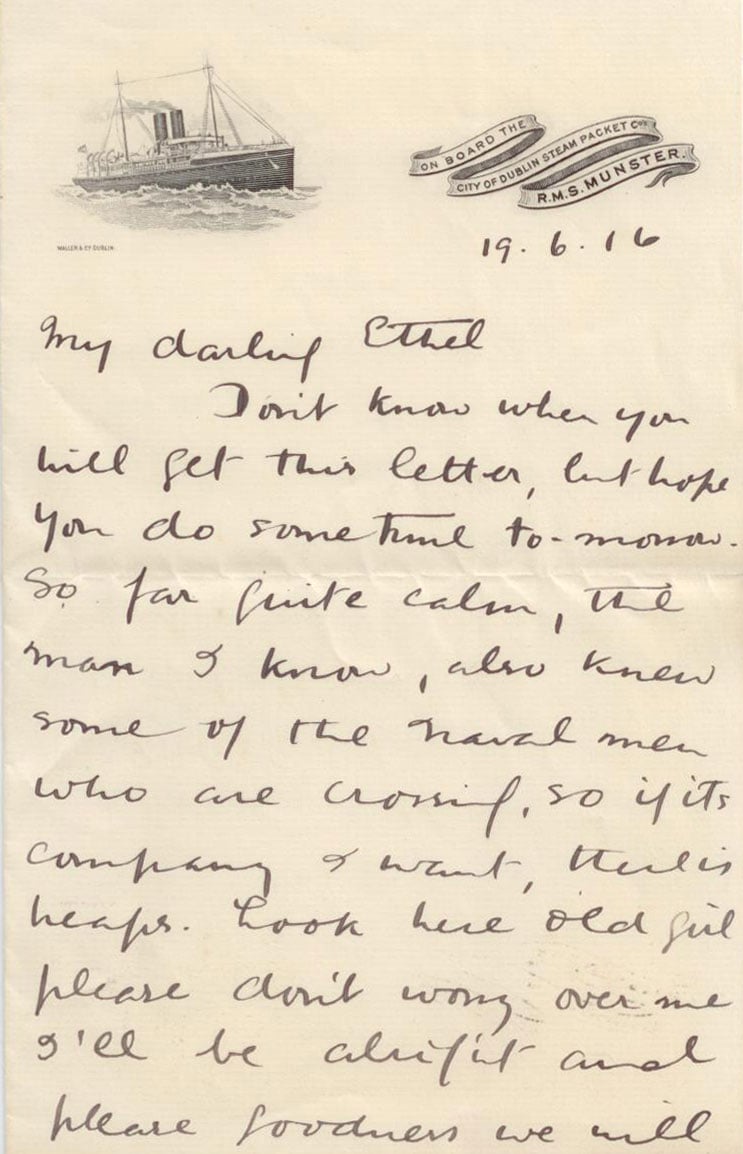 ON BOARD THE
CITY OF DUBLIN STEAM PACKET Coy.
R.M.S. MUNSTER.
WALLER & Co. DUBLIN.
19.6.16
My darling Ethel
Don't know when you
will get this letter, but hope
you do some time to-morrow.
So far quite calm, the
man I know, also knew
some of the naval men
who are crossing, so if its
company I want, there is
heaps. Look here old girl
please don't worry over me
I'll be alright and
please goodness we will